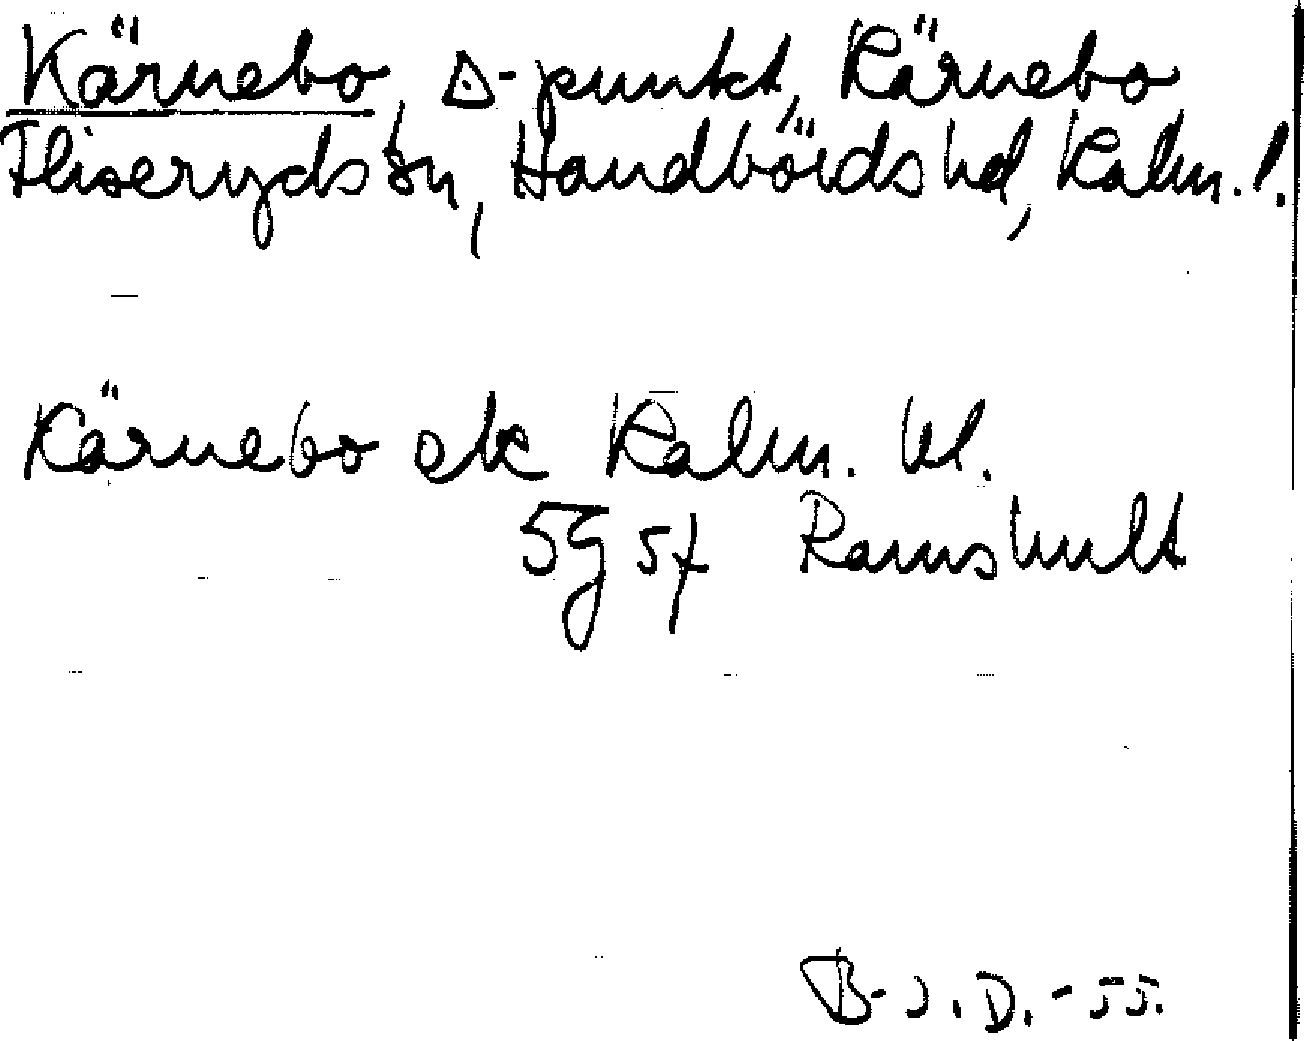 Kärnebo, △-punkt, Kärnebo
Fliseryds sn, Handbörds hd, Kalm. l.
Kärnebo ek Kalm. hl.
5G 5f Ramshult
B-J.D.-55.